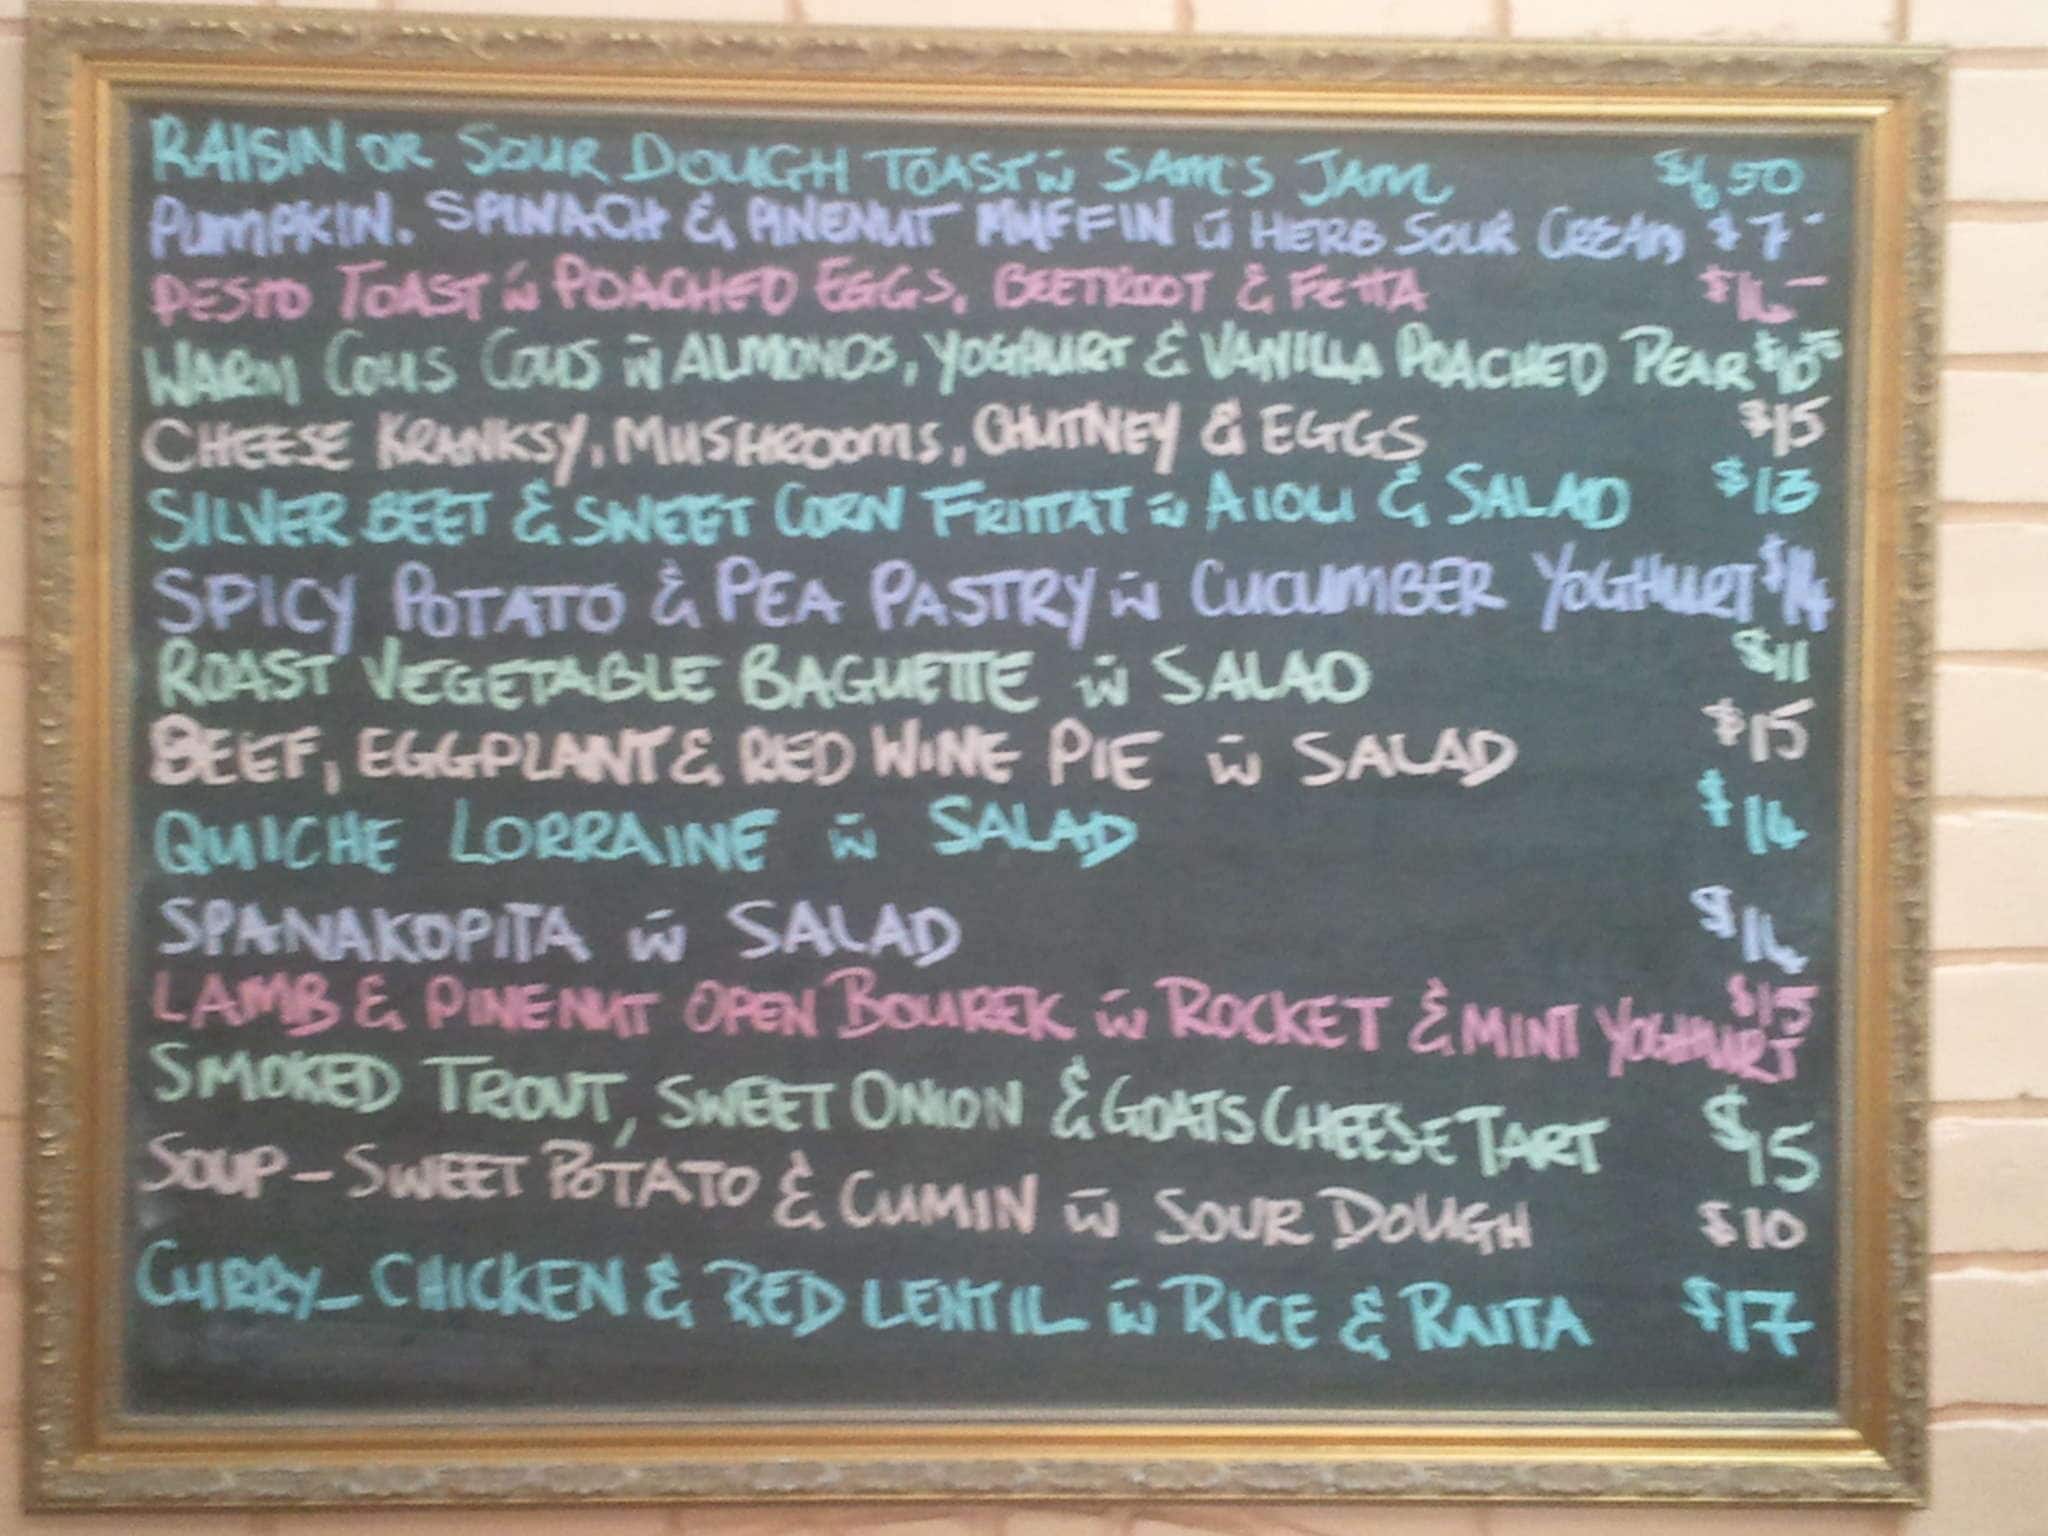 RAISIN OR SOUR DOUGH TOAST w̄ SAM'S JAM $6.50
PUMPKIN. SPINACH & PINENUT MUFFIN w̄ HERB SOUR CREAM $7-
PESTO TOAST w̄ POACHED EGGS, BEETROOT & FETTA
WARM COUS COUS w̄ ALMONDS, YOGHURT & VANILLA POACHED PEAR
CHEESE KRANKSY, MUSHROOMS, CHUTNEY & EGGS $15
SILVER BEET & SWEET CORN FRITTAT w̄ AIOLI & SALAD $13
SPICY POTATO & PEA PASTRY w̄ CUCUMBER YOGHURT $14
ROAST VEGETABLE BAGUETTE w̄ SALAD $11
BEEF, EGGPLANT & RED WINE PIE w̄ SALAD $15
QUICHE LORRAINE w̄ SALAD $14
SPANAKOPITA w̄ SALAD $14
LAMB & PINENUT OPEN BOUREK w̄ ROCKET & MINT YOGHURT $15
SMOKED TROUT, SWEET ONION & GOATS CHEESE TART $15
SOUP - SWEET POTATO & CUMIN w̄ SOUR DOUGH $10
CURRY - CHICKEN & RED LENTIL w̄ RICE & RAITA $17